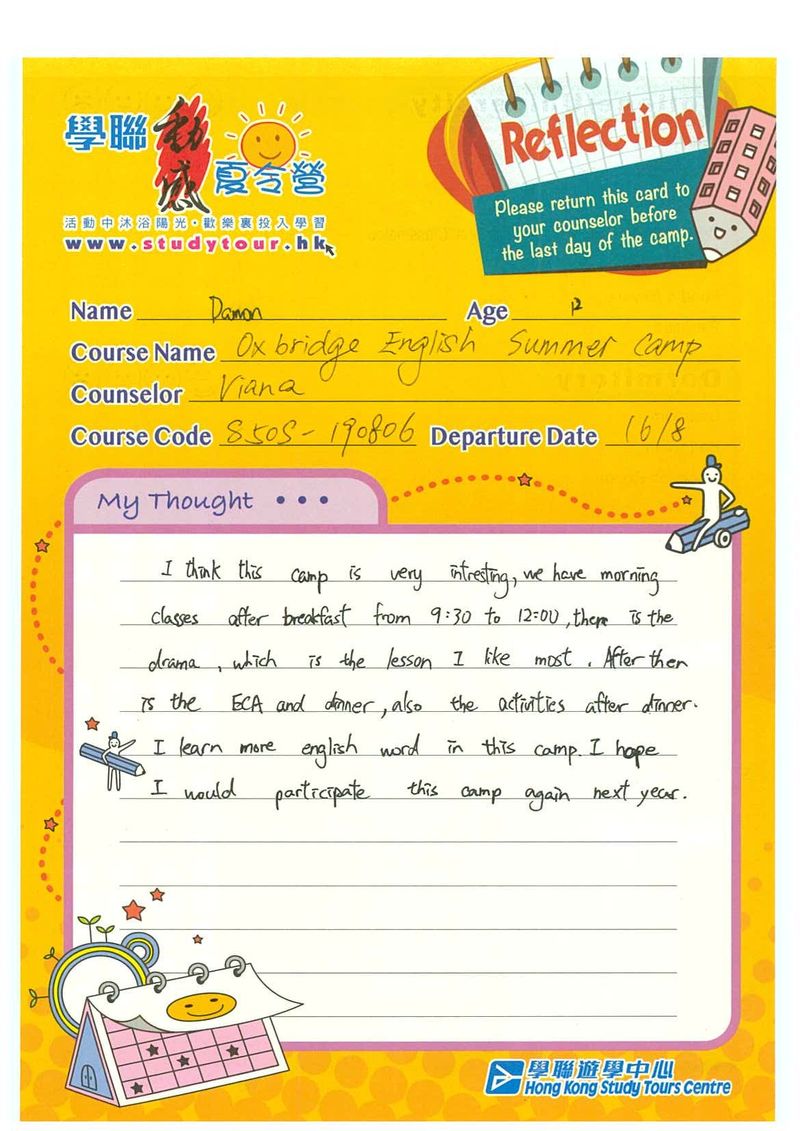 學聯 動感 夏令營
活動中沐浴陽光·歡樂裏投入學習
www.studytour.hk
Reflection
Please return this card to
your counselor before
the last day of the camp.
Name Damon Age 12
Course Name Oxbridge English Summer Camp
Counselor Viana
Course Code S50S-190806 Departure Date 16/8
My Thought • • •
I think this camp is very intresting, we have morning
classes after breakfast from 9:30 to 12:00, there is the
drama, which is the lesson I like most. After then
is the ECA and dinner, also the activities after dinner.
I learn more english word in this camp. I hope
I would participate this camp again next year.
學聯遊學中心
Hong Kong Study Tours Centre